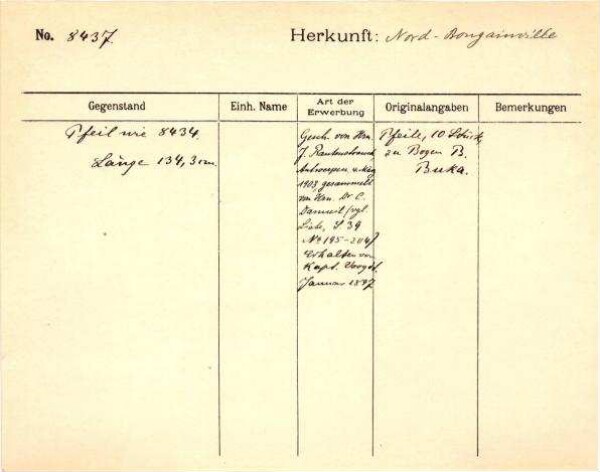 No. 8437.
Herkunft: Nord-Bougainville
Gegenstand
Einh. Name
Art der Erwerbung
Originalangaben
Bemerkungen
Pfeil wie 8434.
Länge 134,3 cm
Gesch. von Hrn.
J. Rautenstrauch,
Antwerpen,
1903, gesammelt
von Hrn. Dr. C.
Damm
Liste, S. 39
No 195-204
Erhalten von
Kapt. Voogdt
Januar 1897
Pfeile, 10 Stück,
zu Bogen B.
Buka.